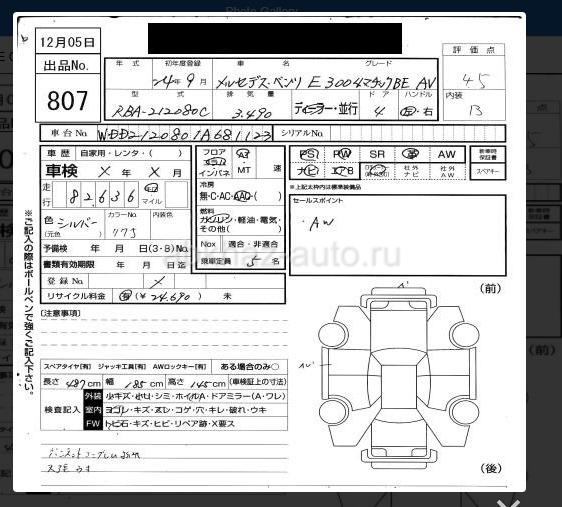 Photo Gallery
12月05日
出品No.
807
評価点
4.5
内装
B
年式 初年度登録 車名 グレード
24年9月 メルセデス・ベンツ E300 4マチックBE AV
型式 排気量 ドア ハンドル
RBA-212080C 3.490 ディーラー・並行 4 左・右
車台No. WDD2120801A681123 シリアルNo.
車歴 自家用・レンタ・( )
車検 X年X月
走行 82636 km マイル
色 シルバー カラーNo. 775 内装色
(元色)
予備検 年 月 日(3・8)No.
書類有効期限 年 月 日迄
登録No.
リサイクル料金 有(¥24.690) 未
フロア コラム インパネ AT MT 速
冷房
無・C・AC・AAC・( )
燃料
ガソリン・軽油・電気・その他( )
Nox 適合・非適合
乗車定員 5名
PS PW SR 革 AW
ナビ エアB 社外ナビ 社外AW
新車時保証書
スペアキー
※上記太枠内は標準装備品
セールスポイント
・AW
〔注意事項〕
※ご記入の際はボールペンで強くご記入下さい。
-auto.ru
スペアタイヤ【有】 ジャッキ工具【有】 AWロックキー【有】 ある場合のみ○
長さ 487cm 幅 185cm 高さ 145cm (車検証上の寸法)
検査記入
外装 小キズ・小凹・シミ・ホイルA・ドアミラー(A・ワレ)
室内 ヨゴレ・キズ・スレ・コゲ・穴・キレ・破れ・ウキ
FW トビ石・キズ・ヒビ・リペア跡・X要ス
(前)
(後)
(前)